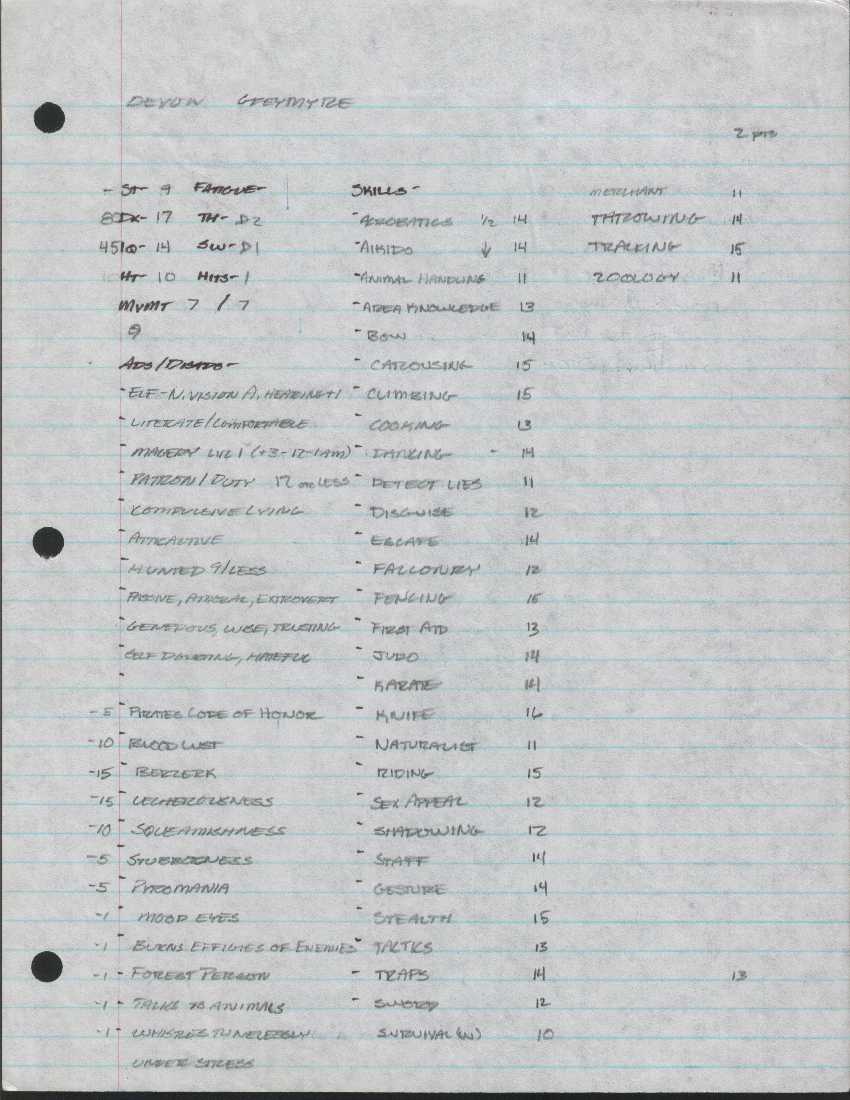 DEVON GREYMYRE
2 pts
- ST- 9 FATIGUE-
80 DX- 17 TH- D2
45 IQ- 14 SW- D1
10 HT 10 HITS- 1
MVMT 7 / 7
9
ADS/DISADS-
- ELF- N. VISION A. HEARING +1
- LITERATE/COMFORTABLE
- MAGERY LVL 1 (+3-12-1AM)
- PATRON/DUTY 12 OR LESS
- COMPULSIVE LYING
- ATTRACTIVE
- HUNTED 9/LESS
- PASSIVE, AMORAL, EXTROVERT
- GENEROUS, WISE, TRUSTING
- SELF DOUBTING, HATEFUL
-
-5 - PIRATES CODE OF HONOR
-10 - BLOOD LUST
-15 - BERZERK
-15 - LECHEROUSNESS
-10 - SQUEAMISHNESS
-5 - STUBBORNESS
-5 - PYROMANIA
-1 - MOOD EYES
-1 - BURNS EFFIGIES OF ENEMIES
-1 - FOREST PERSON
-1 - TALKS TO ANIMALS
-1 - WHISTLES TUNELESSLY
UNDER STRESS
SKILLS -
- ACROBATICS 1/2 14
- AIKIDO ↓ 14
- ANIMAL HANDLING 11
- AREA KNOWLEDGE 13
- BOW 14
- CAROUSING 15
- CLIMBING 15
- COOKING 13
- DANCING - 14
- DETECT LIES 11
- DISGUISE 12
- ESCAPE 14
- FALCONRY 12
- FENCING 15
- FIRST AID 13
- JUDO 14
- KARATE 14
- KNIFE 16
- NATURALIST 11
- RIDING 15
- SEX APPEAL 12
- SHADOWING 12
- STAFF 14
- GESTURE 14
- STEALTH 15
- TACTICS 13
- TRAPS 14
- SWORD 12
SURVIVAL (W) 10
MERCHANT 11
THROWING 14
TRACKING 15
ZOOLOGY 11
13